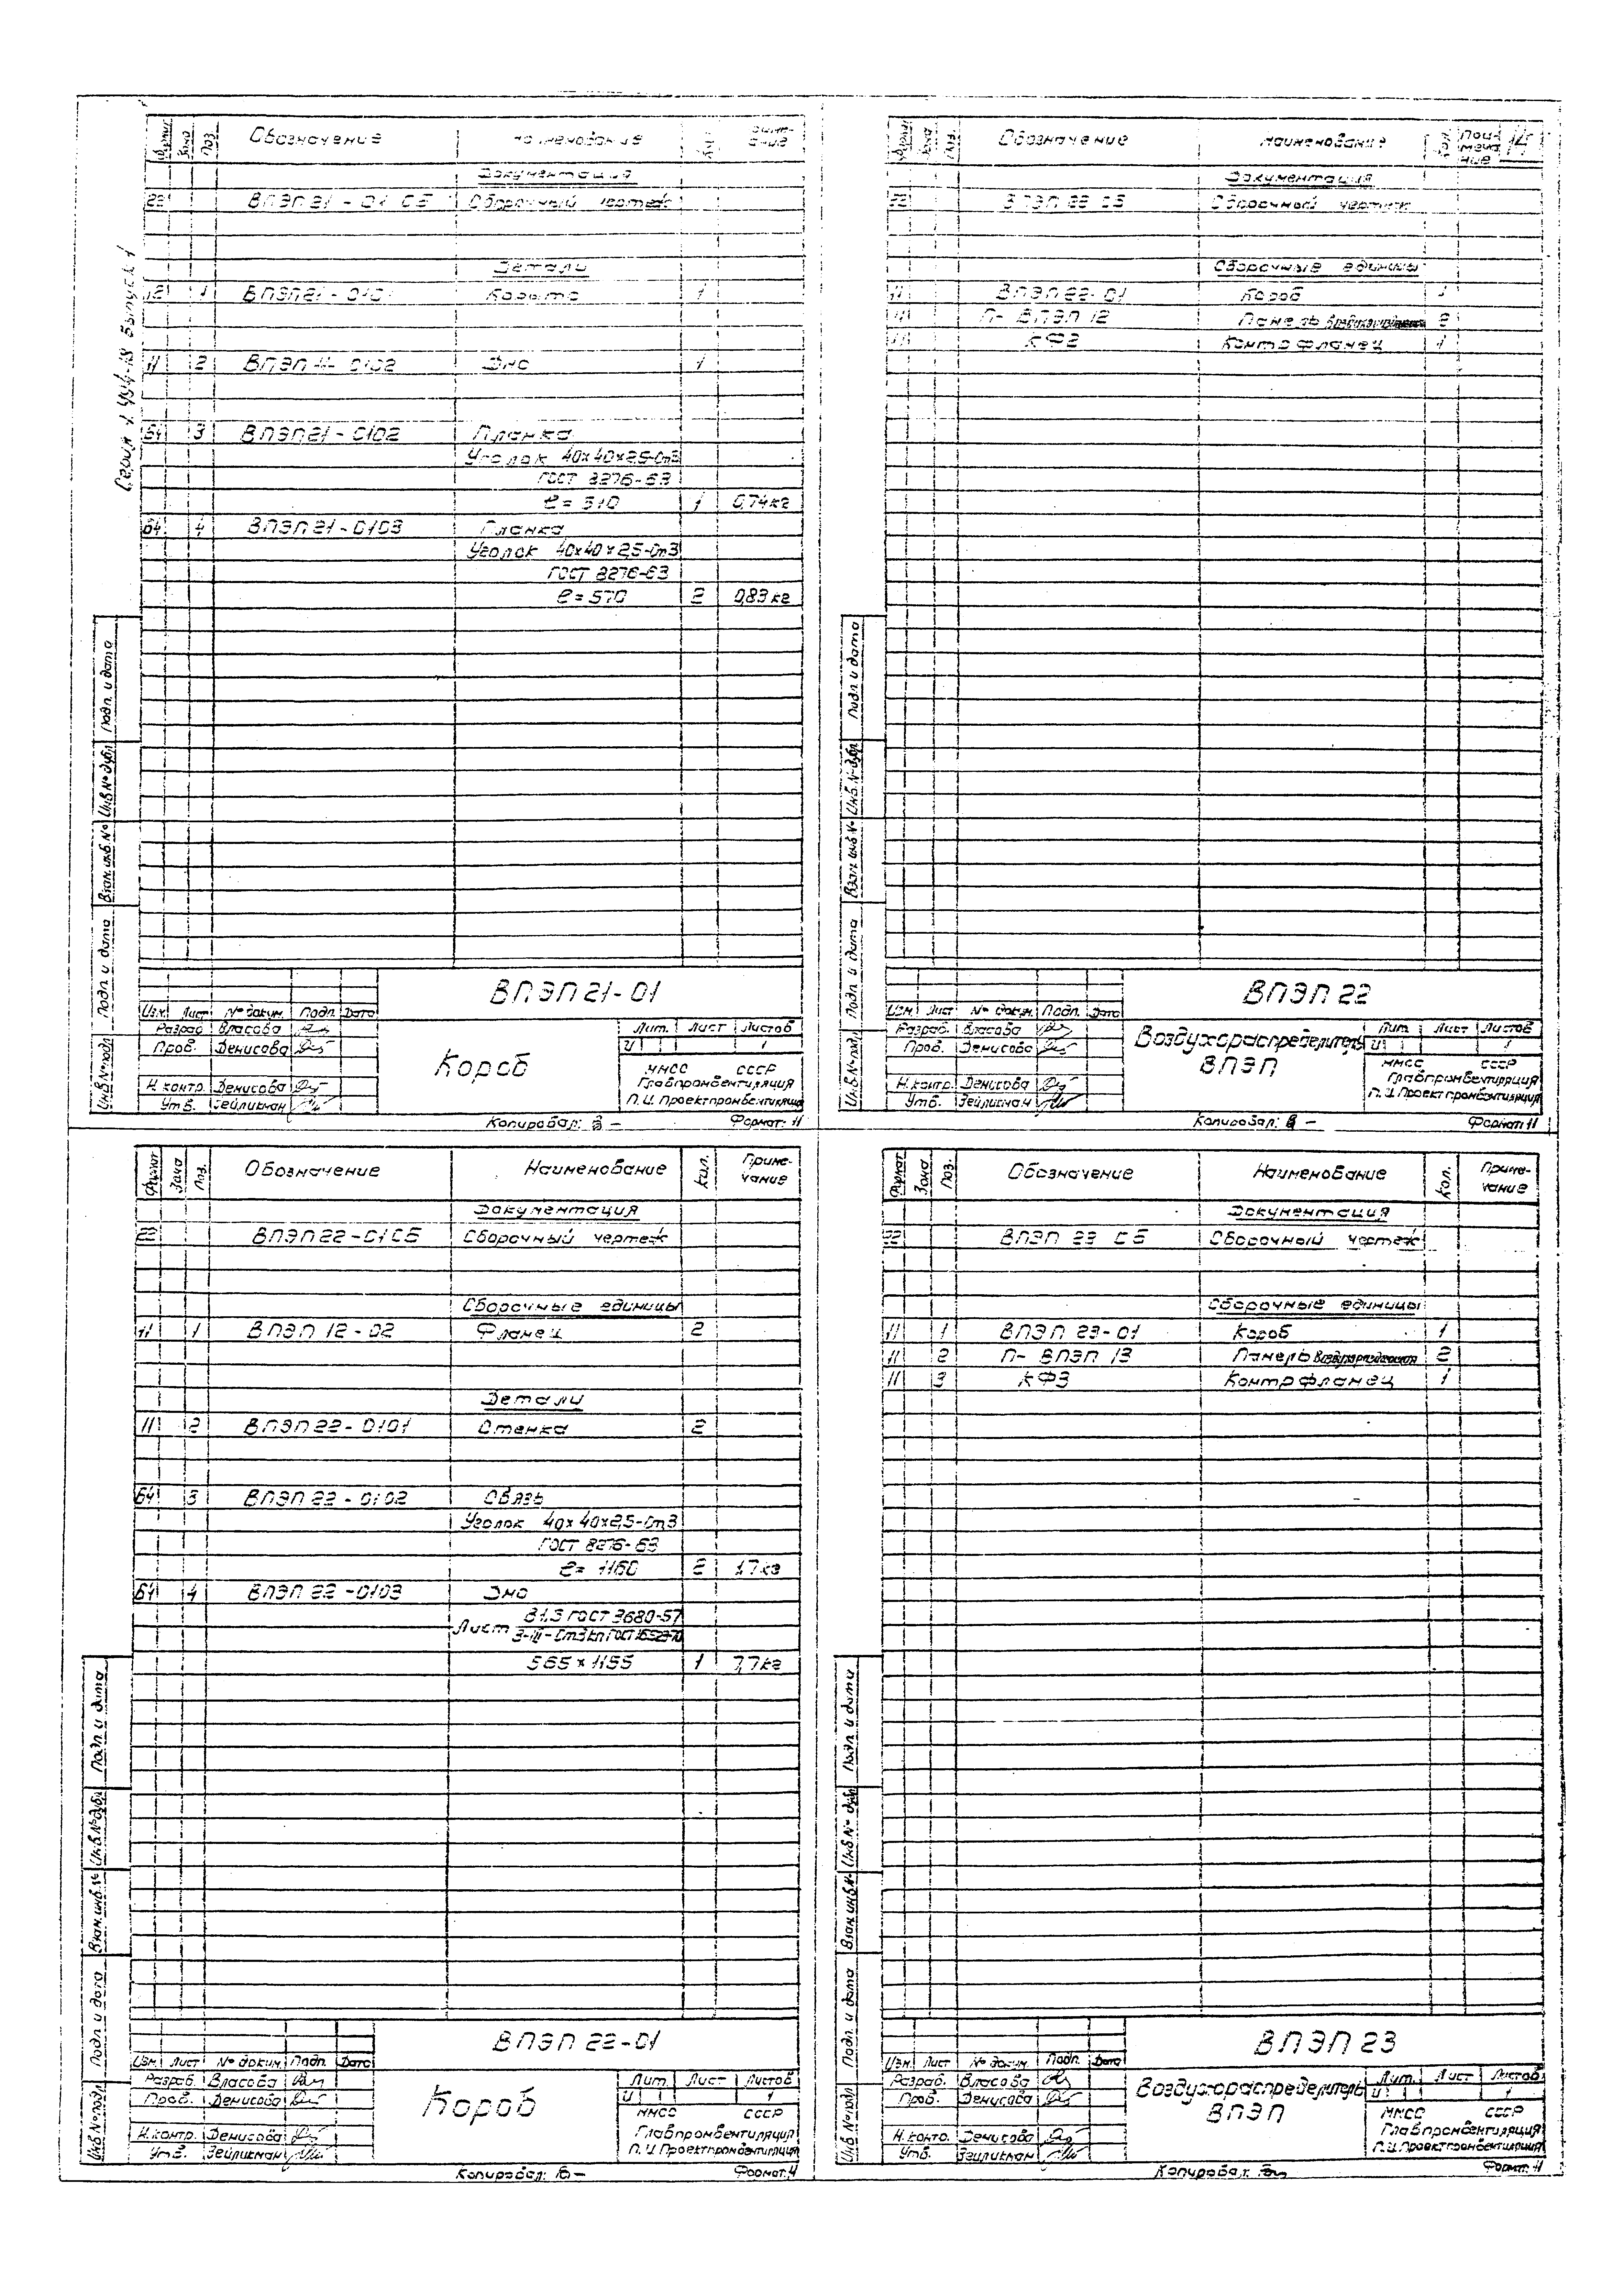 Серия 1.494-18 выпуск 1
Формат Зона Поз. Обозначение Наименование
Документация
22 ВПЭП21-01 СБ Сборочный чертеж
Детали
12 1 ВПЭП21-0101 Корыто 1
11 2 ВПЭП 0102 Дно 1
Б4 3 ВПЭП21-0102 Планка
Уголок 40×40×2,5-Ст3
ГОСТ 8276-63
ℓ= 510 1 0,74кг
Б4 4 ВПЭП21-0103 Планка
Уголок 40×40×2,5-Ст3
ГОСТ 8276-63
ℓ= 570 2 0,83кг
Инв.№подл. Подп. и дата Взам. инв. № Инв.№ дубл. Подп. и дата
ВПЭП21-01
Изм. Лист № докум. Подп. Дата
Разраб. Власова
Пров. Денисова
Н.контр. Денисова
Утв. Зейликман
Короб
Лит. Лист Листов
И 1
ММСС СССР
Главпромвентиляция
П.И. Проектпромвентиляция
Копировал: Формат: 11
Формат Зона Поз. Обозначение Наименование Кол. Приме-чание 14
Документация
22 ВПЭП 22 СБ Сборочный чертеж
Сборочные единицы
11 ВПЭП22-01 Короб 1
11 П- ВПЭП 12 Панель воздухораздающая 2
11 КФ2 Контрфланец 1
Инв.№подл. Подп. и дата Взам. инв. № Инв.№ дубл. Подп. и дата
ВПЭП 22
Изм. Лист № докум. Подп. Дата
Разраб. Власова
Пров. Денисова
Н.контр. Денисова
Утв. Зейликман
Воздухораспределитель
ВПЭП
Лит. Лист Листов
И 1
ММСС СССР
Главпромвентиляция
П.И. Проектпромвентиляция
Копировал: Формат: 11
Формат Зона Поз. Обозначение Наименование Кол. Приме-чание
Документация
22 ВПЭП22-01СБ Сборочный чертеж
Сборочные единицы
11 1 ВПЭП 12-02 Фланец 2
Детали
11 2 ВПЭП22-0101 Стенка 2
Б4 3 ВПЭП 22-0102 Связь
Уголок 40×40×2,5-Ст.3
ГОСТ 8276-63
ℓ= 1160 2 1,7кг
Б4 4 ВПЭП 22-0103 Дно
Лист В1,3 ГОСТ 3680-57
3-III-Ст3кп ГОСТ 16523-70
565×1155 1 7,7кг
Инв.№подл. Подп. и дата Взам. инв. № Инв.№ дубл. Подп. и дата
ВПЭП 22-01
Изм. Лист № докум. Подп. Дата
Разраб. Власова
Пров. Денисова
Н.контр. Денисова
Утв. Зейликман
Короб
Лит. Лист Листов
И 1
ММСС СССР
Главпромвентиляция
П.И. Проектпромвентиляция
Копировал: Формат: 11
Формат Зона Поз. Обозначение Наименование Кол. Приме-чание
Документация
22 ВПЭП 23 СБ Сборочный чертеж
Сборочные единицы
11 1 ВПЭП 23-01 Короб 1
11 2 П- ВПЭП 13 Панель воздухораздающая 2
11 3 КФ3 Контрфланец 1
Инв.№подл. Подп. и дата Взам. инв. № Инв.№ дубл. Подп. и дата
ВПЭП 23
Изм. Лист № докум. Подп. Дата
Разраб. Власова
Пров. Денисова
Н.контр. Денисова
Утв. Зейликман
Воздухораспределитель
ВПЭП
Лит. Лист Листов
И 1
ММСС СССР
Главпромвентиляция
П.И. Проектпромвентиляция
Копировал: Формат: 11